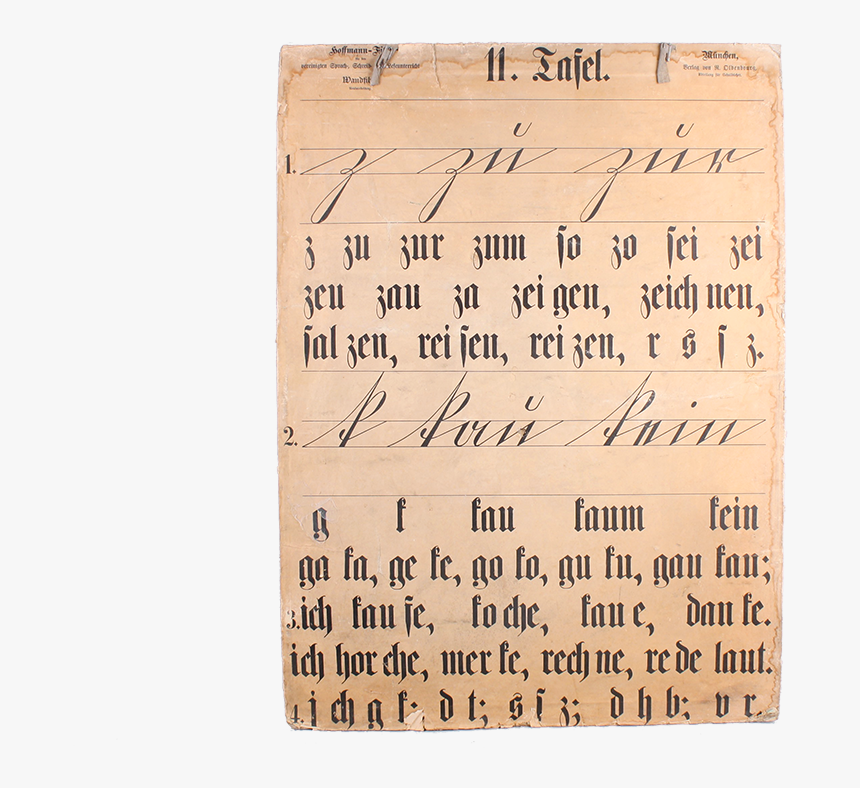 Hoffmann-
11. Tafel.
München,
Verlag von R. Oldenbourg
1. z zu zur
z zu zur zum so zo sei zei
zeu zau za zei gen, zeich nen,
sal zen, rei sen, rei zen, r s ſ z.
2. k kau kein
g k kau kaum kein
ga ka, ge ke, go ko, gu ku, gau kau;
3. ich kau fe, ko che, kau e, dan ke.
ich hor che, mer ke, rech ne, re de laut.
4. j ch g k; d t; s ſ z; d h b; v r.